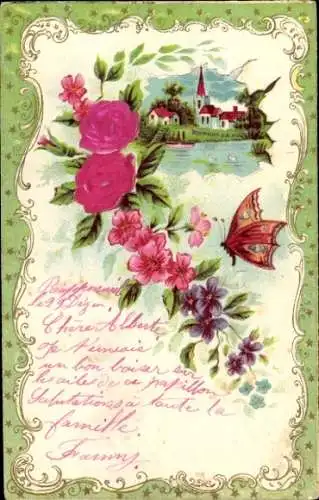 le 29
Chère Alberte
un bon baiser sur
les ailes de ce papillon
Salutations à toute la
famille
Fanny